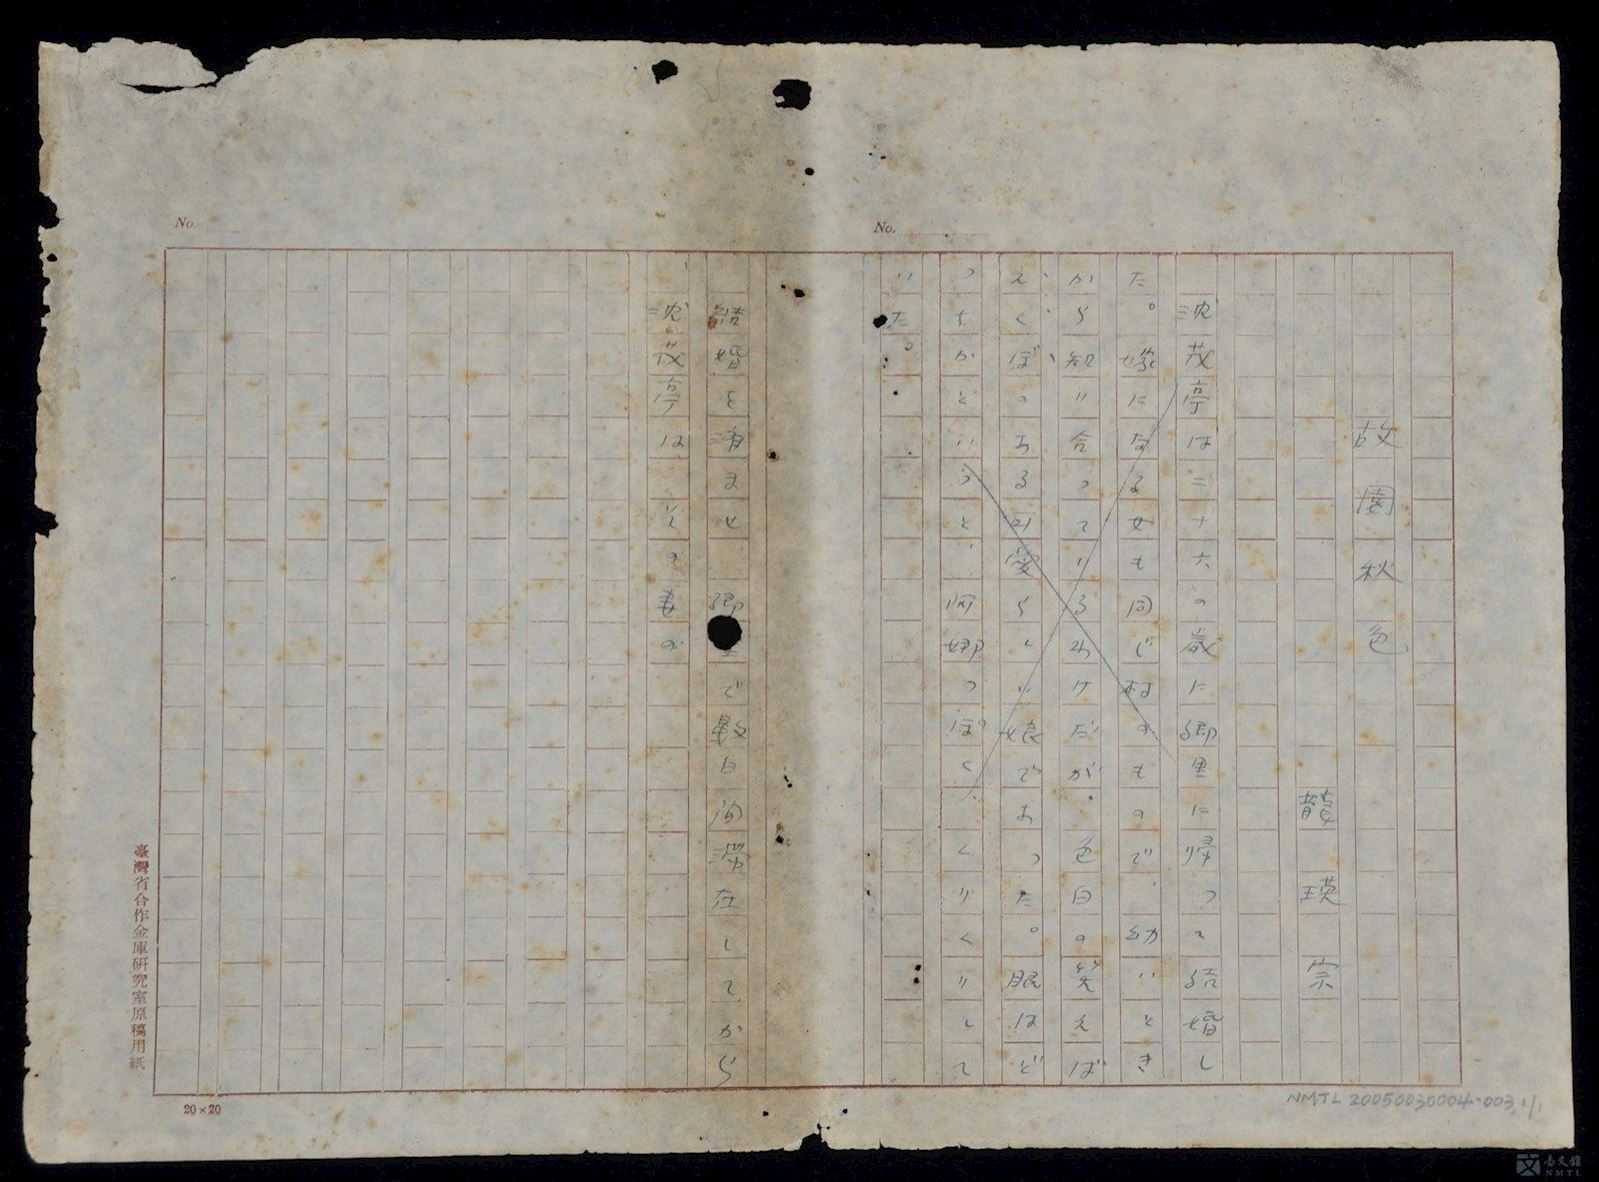 No.
No.
故園秋色
龍瑛宗
沈茂亭は二十六の歳に郷里に帰つて結婚し
た。嫁になる女も同じ村のもので、幼いとき
から知り合つているわけだが、色白の笑えば
えくぼのある可愛らしい娘であつた。眼はど
つちかという と、阿娜つぽく、くりくりして
いた。
結婚を済ませ、郷里で数日間滞在してから
、沈茂亭は
臺灣省合作金庫研究室原稿用紙
20×20
NMTL 20050030004-003 1/1
臺文館
NMTL